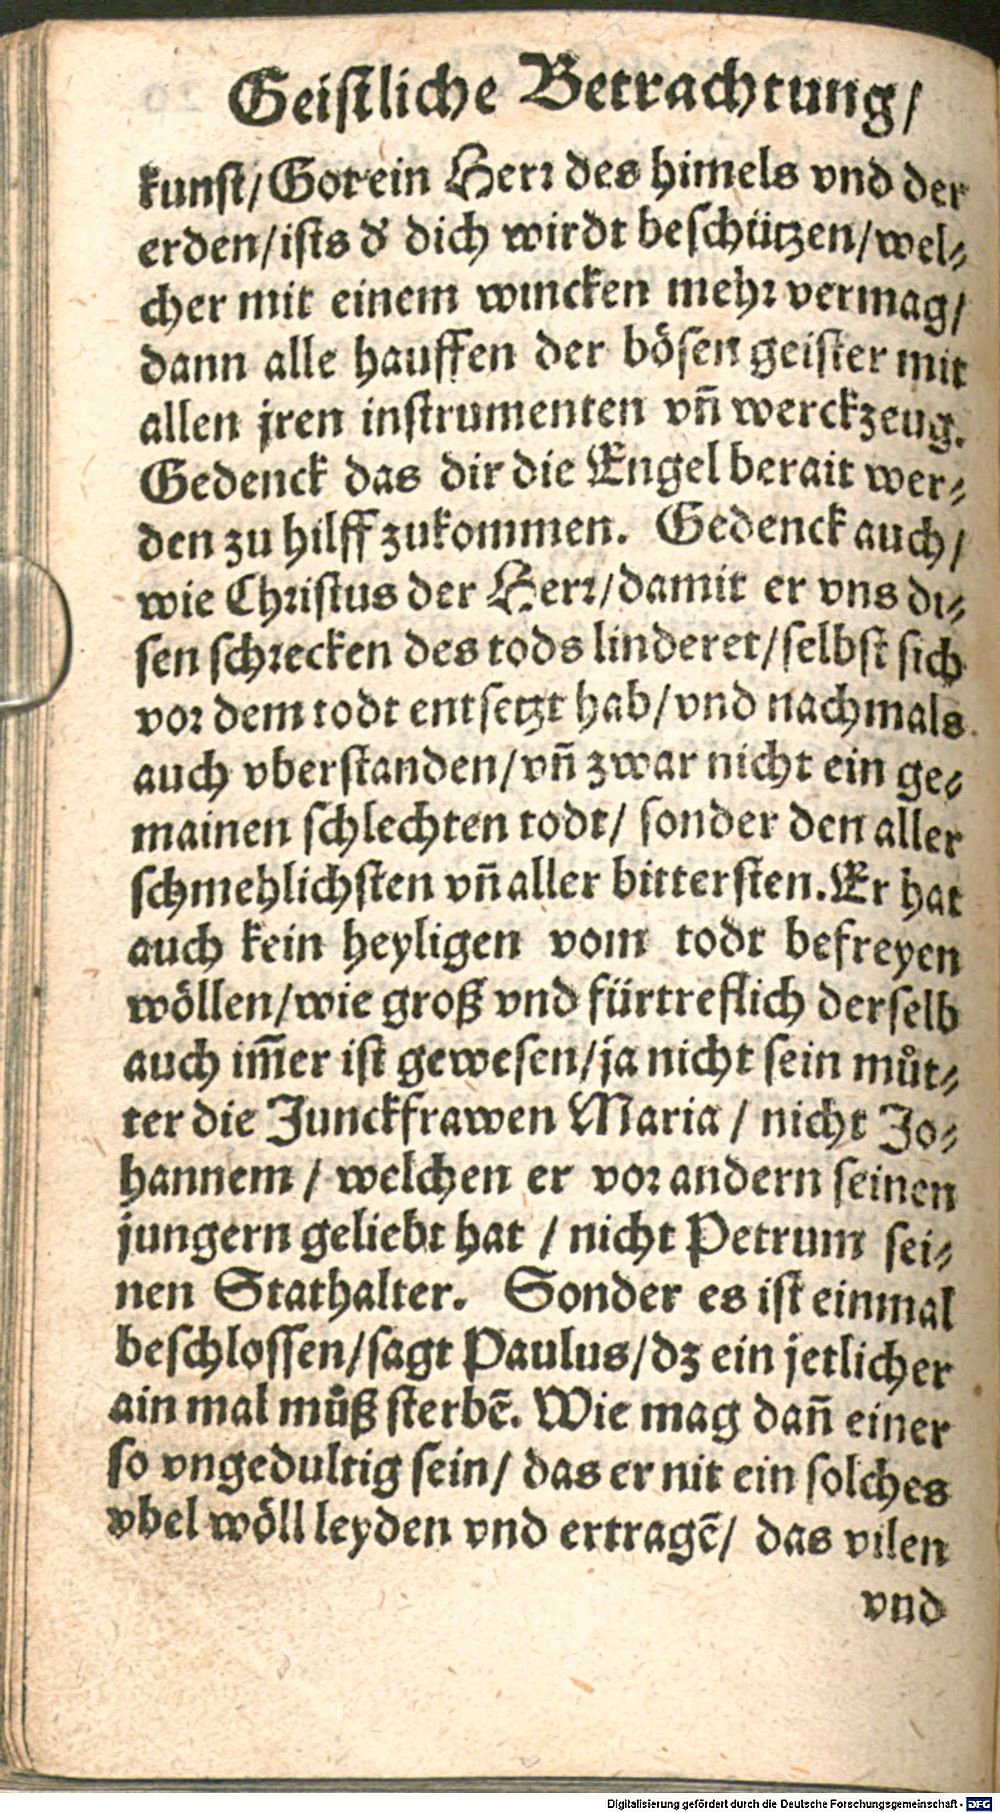 Geistliche Betrachtung/
kunst/Got ein Herr des himels vnd der
erden/ists d' dich wirdt beschützen/wel⸗
cher mit einem wincken mehr vermag/
dann alle hauffen der bösen geister mit
allen jren instrumenten vñ werckzeug.
Gedenck das dir die Engel berait wer⸗
den zu hilff zukommen. Gedenck auch/
wie Christus der Herr/damit er vns di⸗
sen schrecken des tods linderet/selbst sich
vor dem todt entsetzt hab/vnd nachmals
auch vberstanden/vñ zwar nicht ein ge⸗
mainen schlechten todt/ sonder den aller
schmehlichsten vñ aller bittersten. Er hat
auch kein heyligen vom todt befreyen
wöllen/wie groß vnd fürtreflich derselb
auch im̃er ist gewesen/ja nicht sein můt⸗
ter die Junckfrawen Maria / nicht Jo⸗
hannem / welchen er vor andern seinen
jungern geliebt hat / nicht Petrum sei⸗
nen Stathalter. Sonder es ist einmal
beschlossen/sagt Paulus/dz ein jetlicher
ain mal můß sterbẽ. Wie mag dañ einer
so vngedultig sein/ das er nit ein solches
vbel wöll leyden vnd ertragẽ/ das vilen
vnd
Digitalisierung gefördert durch die Deutsche Forschungsgemeinschaft - DFG